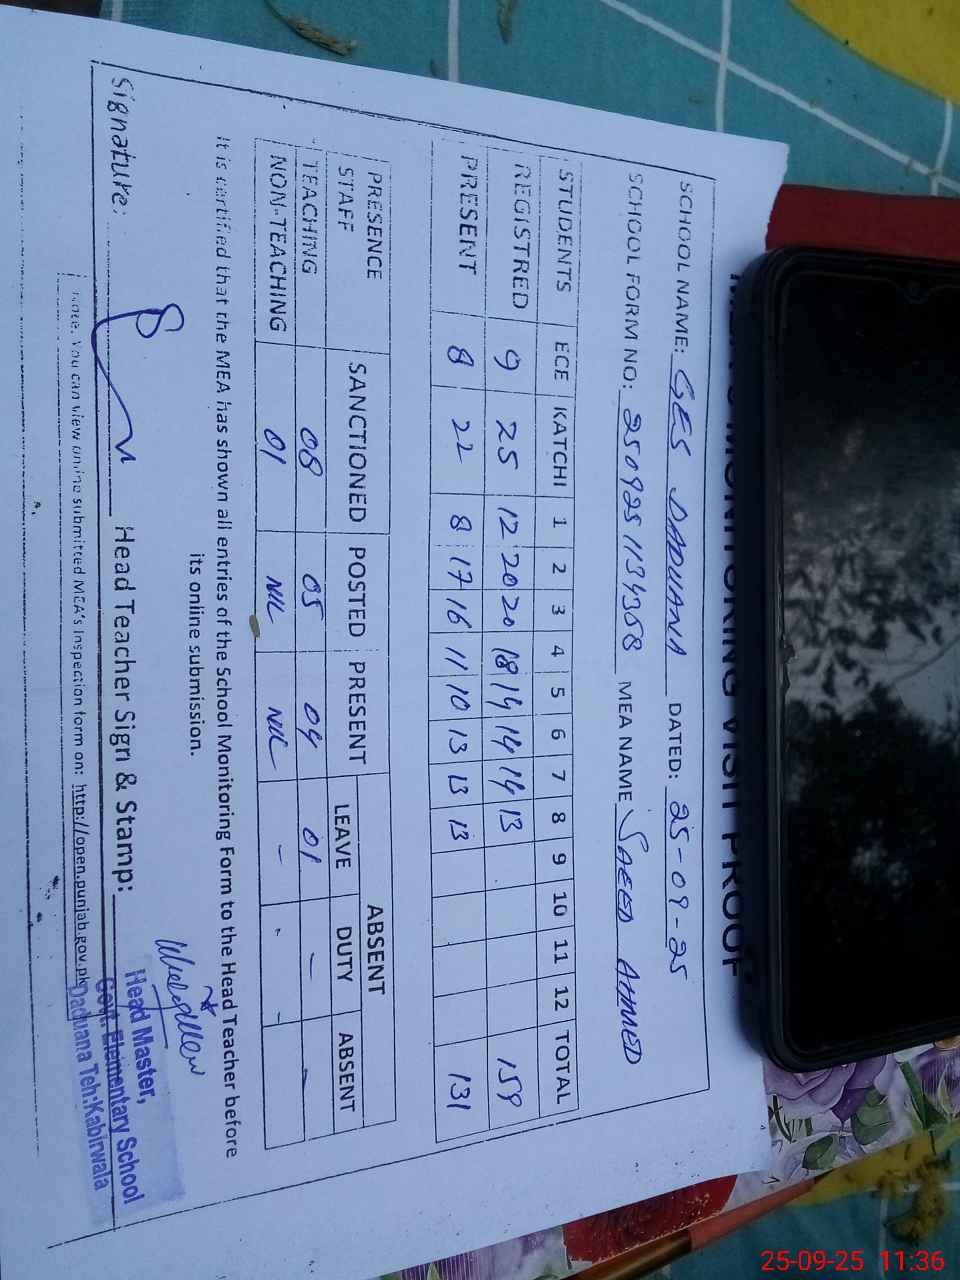 MEA'S MONITORING VISIT PROOF
SCHOOL NAME: GES DADUANA DATED: 25-09-25
SCHOOL FORM NO: 2509251134358 MEA NAME SAEED AHMED
STUDENTS ECE KATCHI 1 2 3 4 5 6 7 8 9 10 11 12 TOTAL
REGISTRED 9 25 12 20 20 18 14 14 14 13 159
PRESENT 8 22 8 17 16 11 10 13 13 13 131
PRESENCE STAFF SANCTIONED POSTED PRESENT ABSENT
LEAVE DUTY ABSENT
TEACHING 08 05 04 01 - -
NON-TEACHING 01 NIL NIL - - -
It is certified that the MEA has shown all entries of the School Monitoring Form to the Head Teacher before
its online submission.
Signature: Head Teacher Sign & Stamp:
Head Master,
Govt. Elementary School
Daduana Teh:Kabirwala
Note. You can view online submitted MEA's Inspection form on: http://open.punjab.gov.pk
25-09-25 11:36